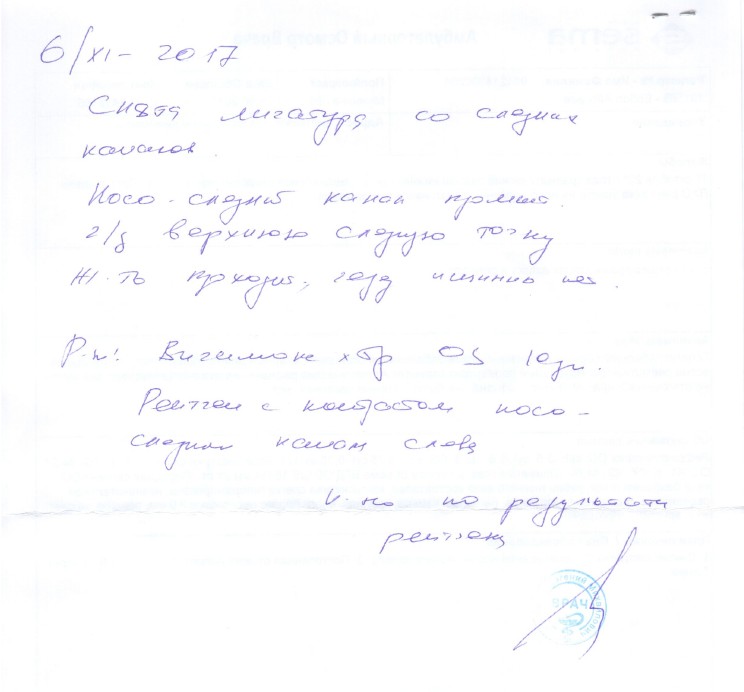 6/XI - 2017
Снята лигатура со слезных
каналов.
Носо-слезный канал промыт.
ч/з верхнюю слезную точку
ж-ть проходит,
Р-н: Вигамокс х 6р OS 10дн.
Рентген с контрастом носо-
слезного канала слева
К-но по результатам
рентгена
ВРАЧ